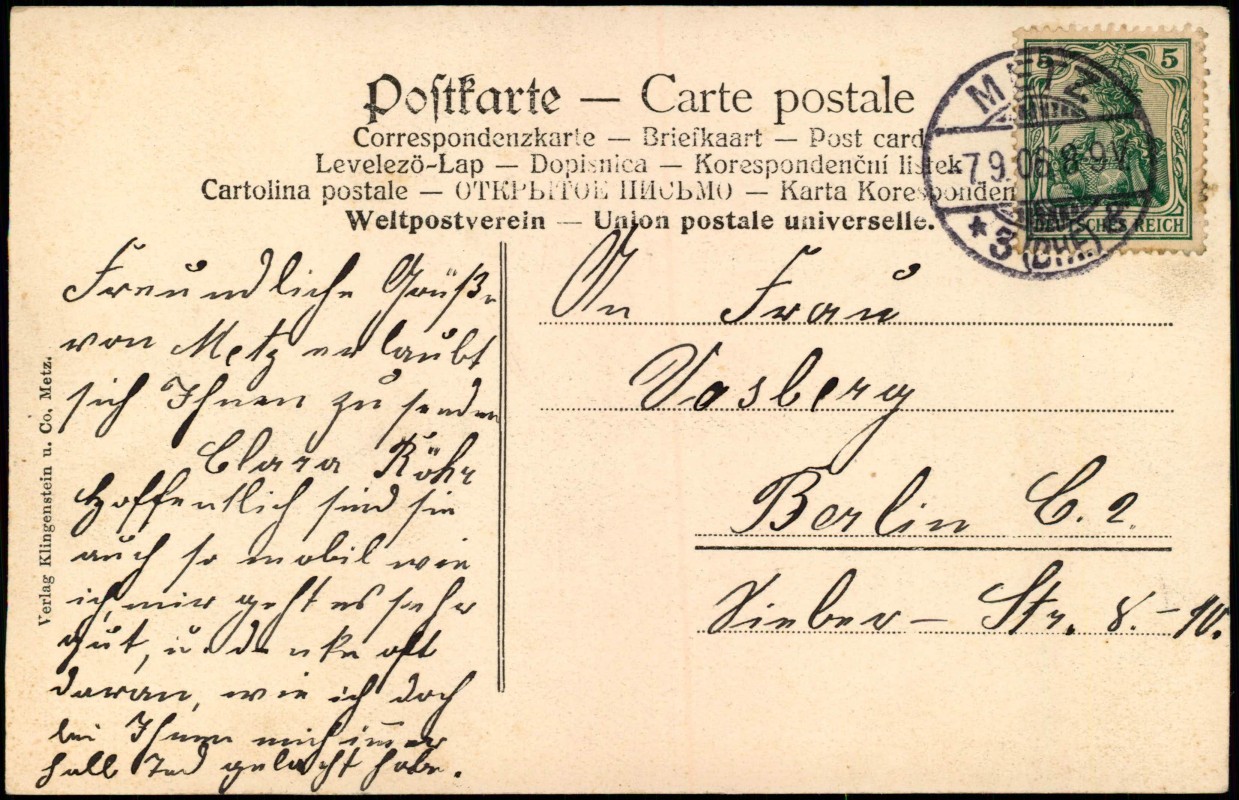 Postkarte — Carte postale
Correspondenzkarte — Briefkaart — Post card
Levelező-Lap — Dopisnica — Korespondenční lístek
Cartolina postale — ОТКРЫТОЕ ПИСЬМО — Karta Koresponden
Weltpostverein — Union postale universelle.
5 5
DEUTSCHES REICH
METZ
7.9.06.8-9V
* 3 (BHF.) g
Freundliche Grüße
von Metz erlaubt
sich Ihnen zu senden
Clara Röhr
Hoffentlich sind sie
auch so mobil wie
ich, mir geht es sehr
gut, u. denke oft
daran, wie ich doch
bei Ihnen mich immer
halb Tod gelacht habe.
An Frau
Vosberg
Berlin C. 2.
Sieber-Str. 8.-10.
Verlag Klingenstein u. Co., Metz.